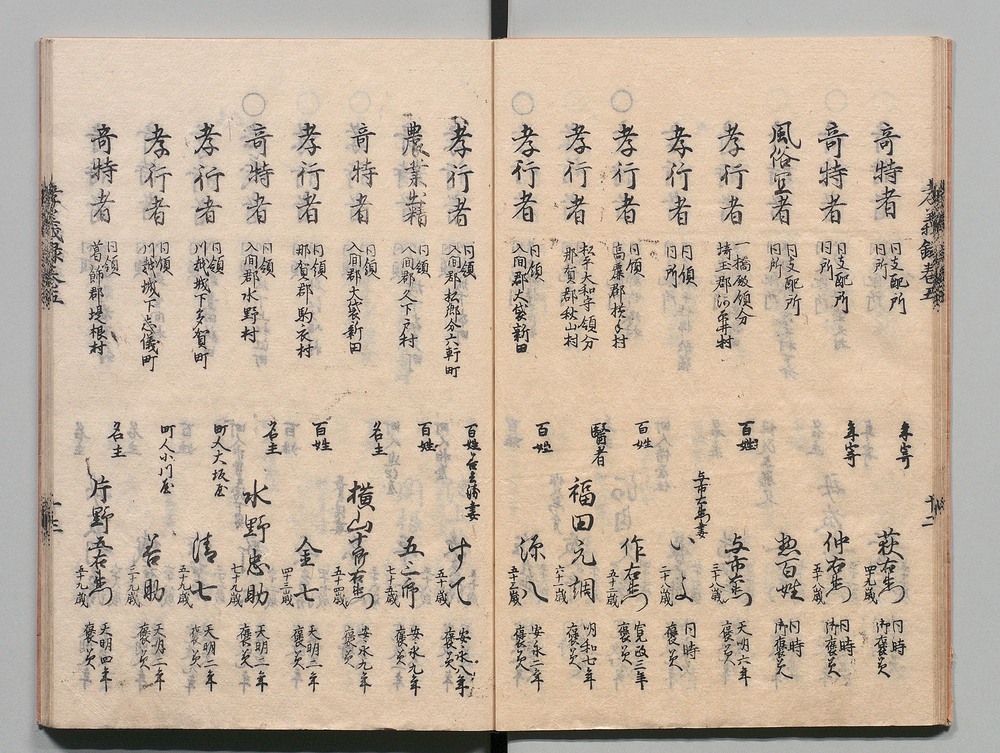 孝義録巻五
十二
奇特者 同支配所 同所 年寄 萩右衛門 四十九歳 同時 御褒美
○奇特者 同支配所 同所 年寄 仲右衛門 五十歳 同時 御褒美
風俗宜者 同支配所 同所 惣百姓 同時 御褒美
孝行者 一橋殿領分 埼玉郡 百姓 与市右衛門 三十八歳 天明六年 褒美
孝行者 同領 同所 与市右衛門妻 いよ 二十八歳 同時 褒美
○孝行者 同領 高麗郡 百姓 作右衛門 五十三歳 寛政三年 褒美
孝行者 松平大和守領分 那賀郡秋山村 醫者 福田元調 六十一歳 明和七年 褒美
○孝行者 同領 入間郡大袋新田 百姓 源八 五十三歳 安永二年 褒美
孝行者 同領 入間郡松郷分六軒町 百姓 妻 すて 五十歳 安永八年 褒美
農業出精者 同領 入間郡久下戸村 百姓 五三郎 七十五歳 安永九年 褒美
○奇特者 同領 入間郡大袋新田 名主 横山十郎右衛門 五十四歳 安永九年 褒美
○孝行者 同領 那賀郡駒衣村 百姓 金七 四十三歳 天明二年 褒美
○奇特者 同領 入間郡水野村 名主 水野忠助 七十九歳 天明二年 褒美
孝行者 同領 川越城下多賀町 町人大坂屋 清七 五十九歳 天明二年 褒美
孝行者 同領 川越城下志儀町 町人小川屋 若助 三十九歳 天明二年 褒美
奇特者 同領 葛飾郡堤根村 名主 片野五右衛門 五十九歳 天明四年 褒美
孝義録巻五
十三